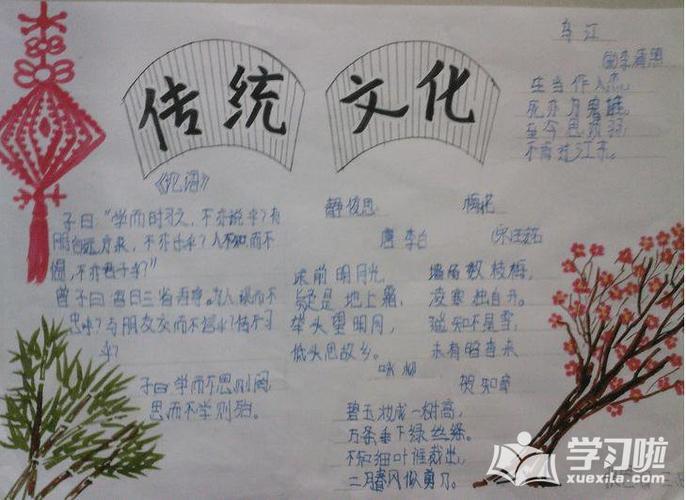 传统文化
《论语》
子曰:"学而时习之,不亦说乎?有
朋自远方来,不亦乐乎?人不知而不
愠,不亦君子乎?"
曾子曰:吾日三省吾身。为人谋而不
忠乎?与朋友交而不信乎?传不习
乎?
子曰学而不思则罔
思而不学则殆。
静夜思
唐 李白
床前明月光,
疑是地上霜,
举头望明月,
低头思故乡。
梅花
墙角数枝梅,
凌寒独自开。
遥知不是雪,
未有暗香来
咏柳
贺知章
碧玉妆成一树高,
万条垂下绿丝绦。
不知细叶谁裁出,
二月春风似剪刀。
乌江
李清照
生当作人杰,
死亦为鬼雄,
至今思项羽,
不肯过江东。
学习啦
xuexila.com